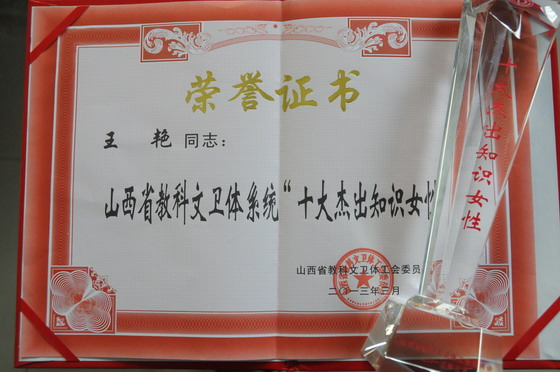 荣誉证书
王 艳 同志:
山西省教科文卫体系统“十大杰出知识女性
山西省教科文卫体工会委员
二〇一三年三月
十大杰出知识女性